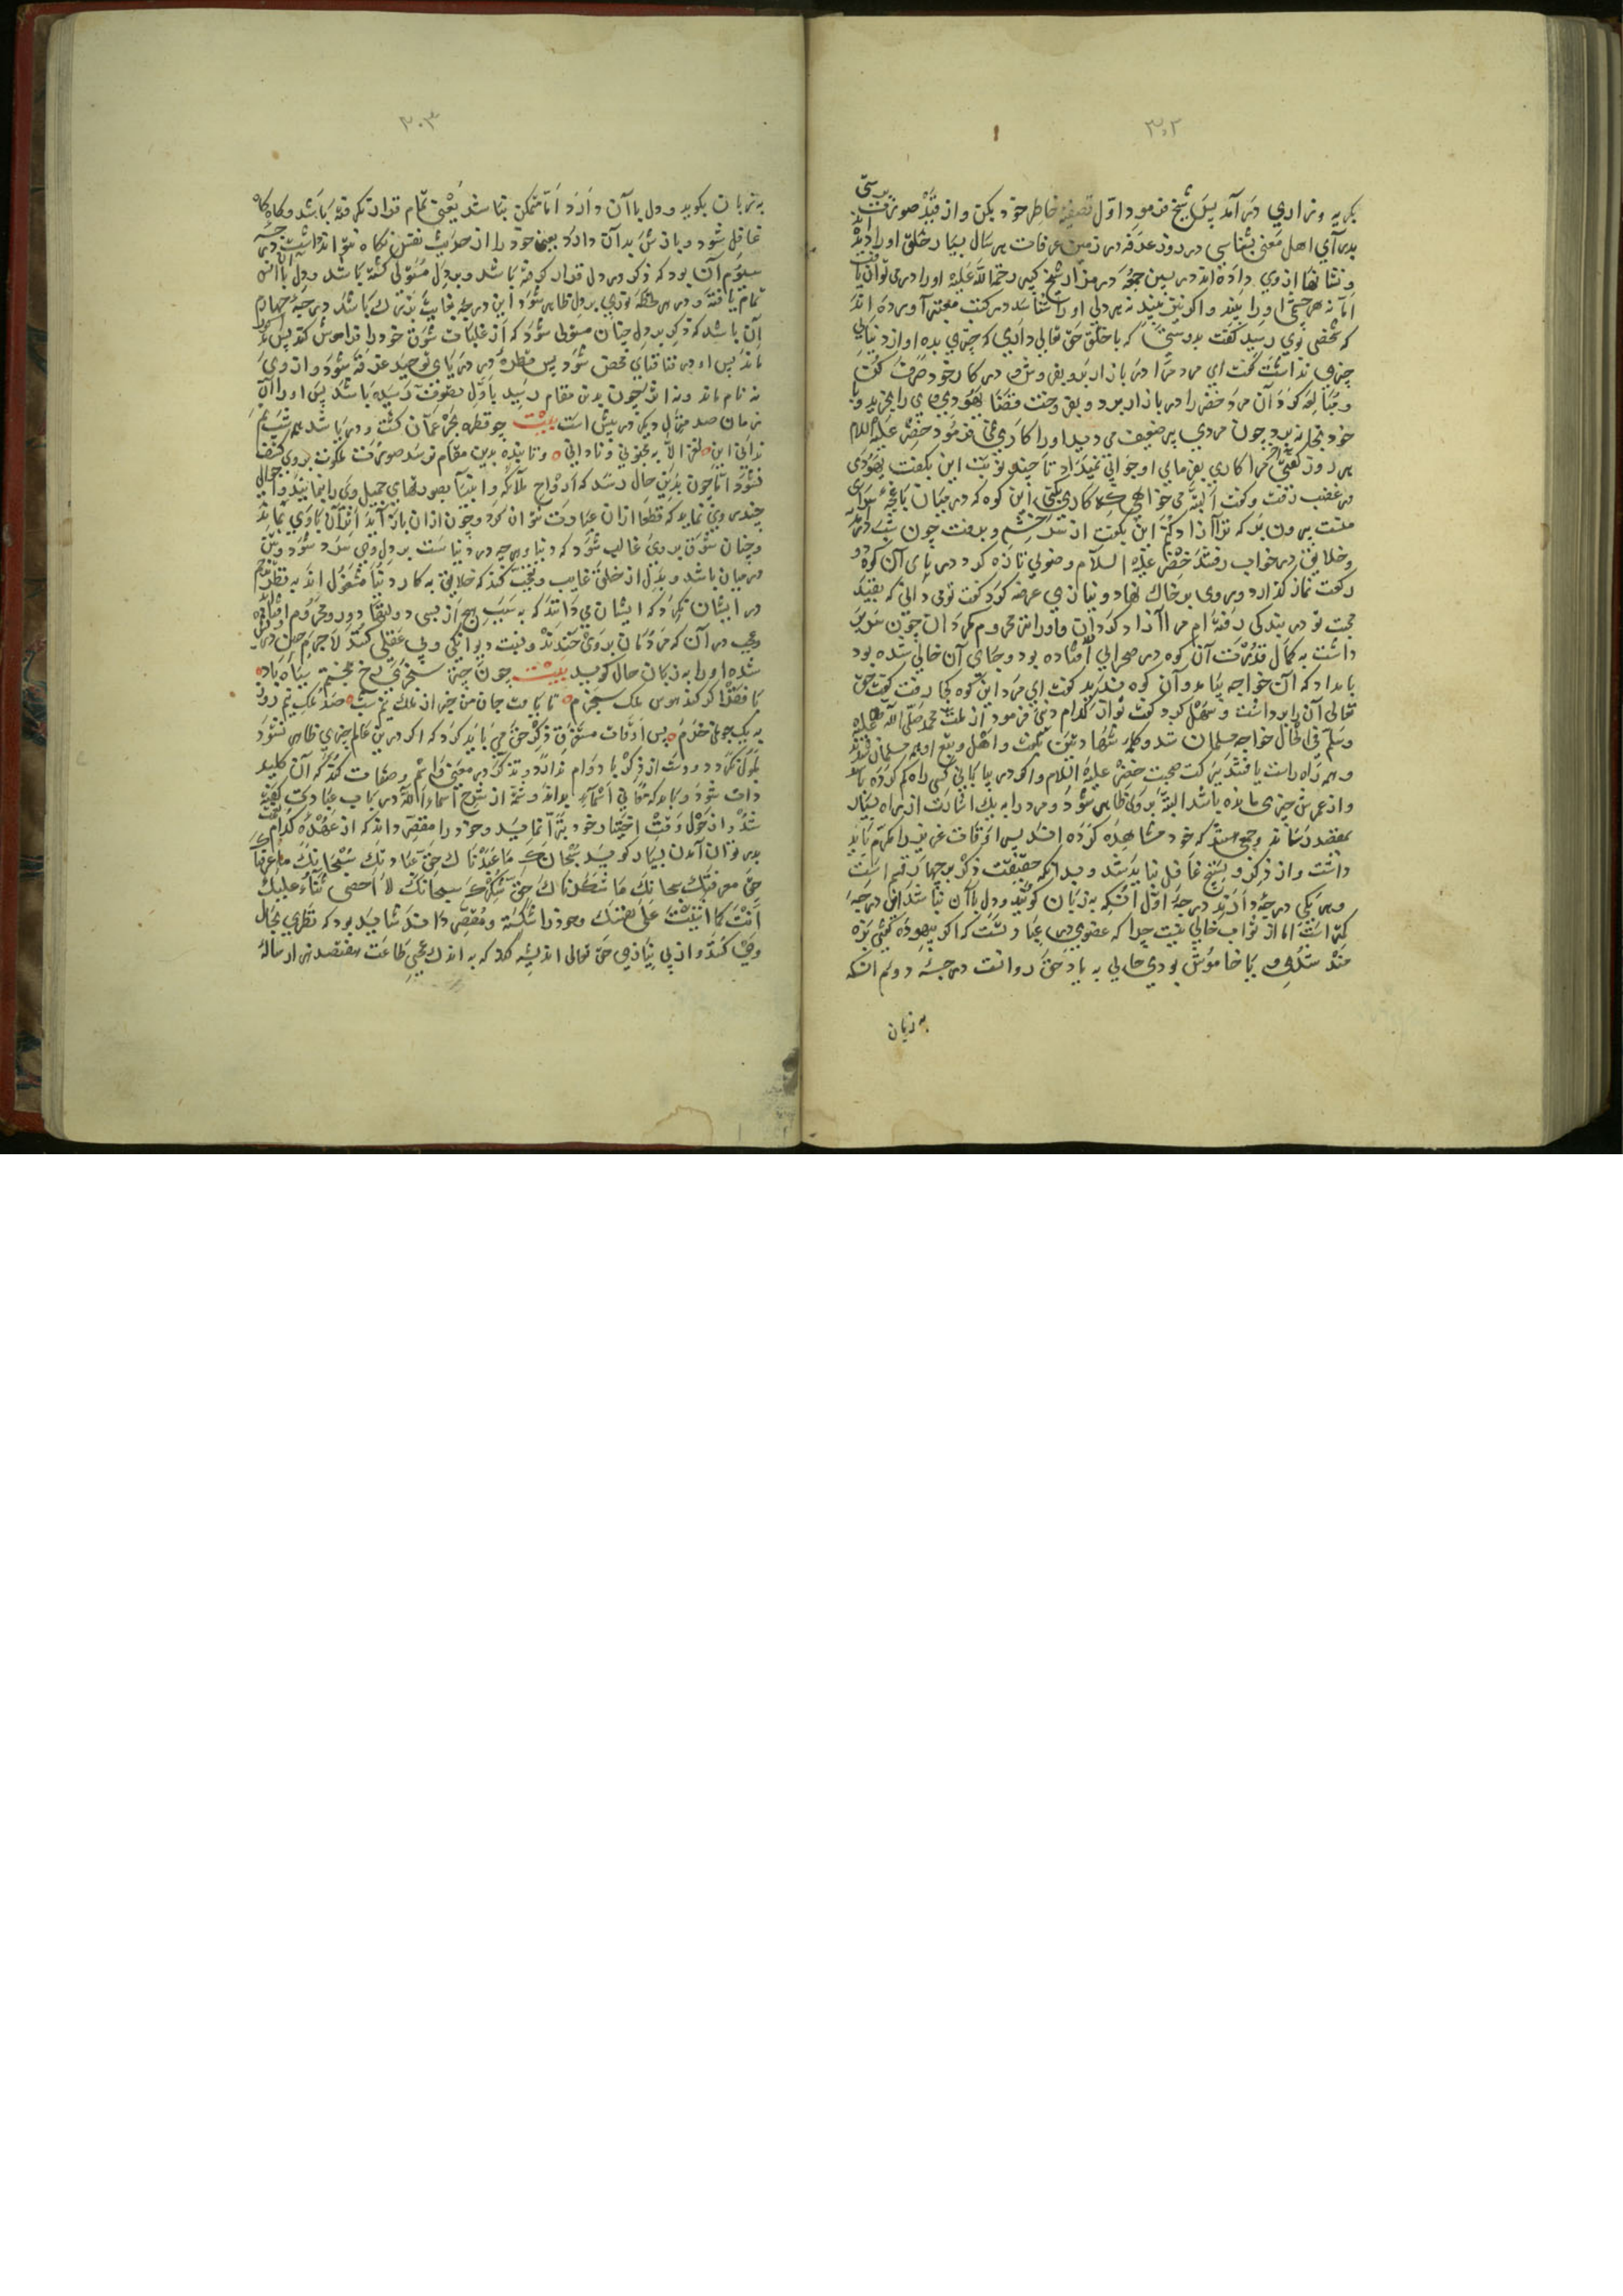 ۳۰۲
بگریه وزاری درآمد پس شیخ فرمود اوّل تصفیهٔ خاطر خود بکن و از قید صورت پرستی
بدر آی اهل معنی بشناسی در روز عرفه در زمین عرفات هر سال بسیار خلق او را دیده اند
و نشانها از وی داده اند در بین جمعه در مزار شیخ کبیر رحمة الله علیه او را در می توان یافت
امّا نه هر چشمی او را بیند و اگر نیز بیند نه هر دلی او را شناسد در کتب معتبر آورده اند
که شخصی بوی رسید گفت که با خلق حق تعالی داری که چیزی بده او از دنیایی
چیزی نداشت گفت ای مرد مرا در بازار بر و بفروش و در کار خود صرف کن
و مبالغه کرد آن مرد خضر را در بازار برد و بفروخت قضا یهودی وی را بخرید و با
خود بخانه برد چون مردی پیر ضعیف می دید او را کاری نمی فرمود خضر علیه السلام
هر روز گفتی مرا کاری بفرمای او جوابی نمیداد تا چند نوبت این بگفت یهودی
در غضب رفت و گفت البته می خواهی که کاری بکنی این کوه که در میان باغچه سرای
منست بیرون بر که ترا آزاد کنم این بگفت از سر خشم و برفت چون شب درآمد
و خلایق در خواب رفتند خضر علیه السلام وضوئی تازه کرد و در پای آن کوه دو
رکعت نماز گذارد و روی بر خاک نهاد و نیاز می عرضه کرد گفت تو می دانی که بقید
محبت تو در بندگی رفته ام مرا آزاد گردان و او را نیز محروم مگردان چون سر بر
داشت به کمال قدرت آن کوه در صحرایی افتاده بود و جای آن خالی شده بود
بامداد که آن خواجه بیامد و آن کوه ندید گفت ای مرد این کوه کجا رفت گفت حق
تعالی آن را برداشت و سهل کرد گفت تو از کدام دینی فرمود از ملت محمد صلی الله علیه
وسلم فی الحال خواجه مسلمان شد و کلمهٔ شهادتین بگفت و اهل و تبع او هم مسلمان شدند
و همه راه راست یافتند ببرکت صحبت خضر علیه السلام و اگر در بیابانی کسی راه گم کرده باشد
و از عمرش چیزی مانده باشد البته بر وی ظاهر شود و مرد را به یک اشارت از راه بسیار
بمقصد رساند و جمعی هستند که خود مشاهده کرده اند پس اوقات عزیز را مکرم باید
داشت و از ذکر و تسبیح غافل نباید شد و بدانکه حقیقت ذکر بر چهار قسم است
و هر یکی درجهٔ دارد درجهٔ اوّل آنکه به زبان گوید و دل با آن نباشد این درجه
کمتر است امّا از ثواب خالی نیست چرا که عضوی در عبادتست که اگر بیهوده
شدی یا خاموش بودی خالی به یاد حق روانست درجهٔ دوم آنکه
به زبان
۳۰۳
به زبان بگوید و دل با آن دارد امّا متمکن نباشد یعنی تمام قرار نگرفته باشد و گاه گاه
غافل شود و باز بدان دارد یعنی خود را از حدیث نفس نگاه نتواند داشت درجهٔ
سیوم آن بود که ذکر در دل قرار گرفته باشد و بر دل مستولی گشته باشد و دل با آن انس
تمام یافته و در هر لحظه نوری بر دل ظاهر شود این درجه بغایت بزرگ باشد درجه چهارم
آن باشد که ذکر بر دل چنان مستولی شود که از غلبات شوق خود را فراموش کند پس
ماند پس او در فنا فنای محض شود پس قطره در دریای توحید غرقه شود و از وی
نه نام ماند و نه اثر چون بدین مقام رسید باوّل تصوّف رسیده باشد پس او را آن
زمان صد منزل دیگر در پیش است بیت چو قطره بحر عمان گشت و دریا شد
ندانی این لغز الا به مجنونی و نادانی و تا بنده بدین مقام نرسد صورت ملکوت بر وی کشف
نشود امّا چون بدین حال رسد که ارواح ملائکه و انبیا بصورتهای جمیل وی را بنمایند و احوال
چند بر وی نماید که قطعا ازان عبارت نتوان کرد و چون ازان باز آید اثر آن با وی بماند
و چنان شوق بر وی غالب شود که دنیا و هر چه در دنیاست بر دل وی سرد شود و بتن
در میان باشد و بدل از خلق غایب و تعجب کند که خلایق به کار دنیا مشغول اند به نظر ترحم
در ایشان نگرد که ایشان نمی دانند که به سبب هیچ از بسی دولتها دور و محروم افتاده اند
و عجب در آن که مردمان بر وی خندند و نسبت دیوانگی و بی عقلی کنند لاجرم
شده او را به زبان حال گوید بیت چون چتر سنجری رخ بختم سیاه باد
با فقر اگر کند هوس ملک سنجرم تا یافت جان من خبر از ملک نیم شب صد ملک نیمروز
به یک جو نمی خرم پس اوقات مستغرق ذکر حق می باید کرد که اگر در این عالم چیزی ظاهر نشود
ملول نگردد و دست از ذکر باز ندارد و تذکر در معنی قائم و صفات کند که آن کلید
ذات شود و باید که معانی اسما بداند و شمّهٔ از شرح اسماء الله در باب عبادت گفته
شد و از حول و قوّت اختیار خود تبرّا نماید و خود را مقصر داند که از عهدهٔ کدام نعمت
بدر توان آمدن بسیار گوید سبحانک ما عبدناک حق عبادتک سبحانک ما عرفناک
حق معرفتک سبحانک ما شکرناک حق شکرک سبحانک لا احصی ثناء علیک
انت کما اثنیت علی نفسک و خود را شکسته و مقصر داند شاید بود که نظری بحال
وی کنند و از بی نیازی حق تعالی اندیشه کند که به اندک عجبی طاعت هفتصد هزار ساله